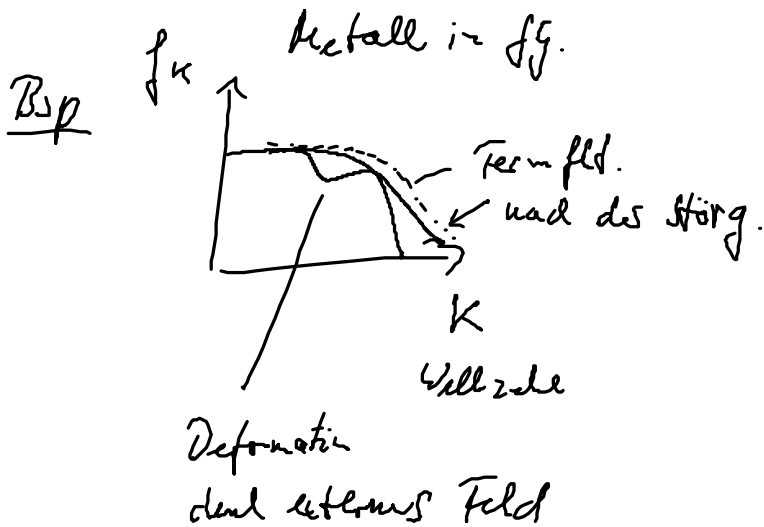 Metall in fG.
Bsp
f_K
Fermfld.
nach der Störg.
K
Wellzahl
Deformation
durch externes Feld